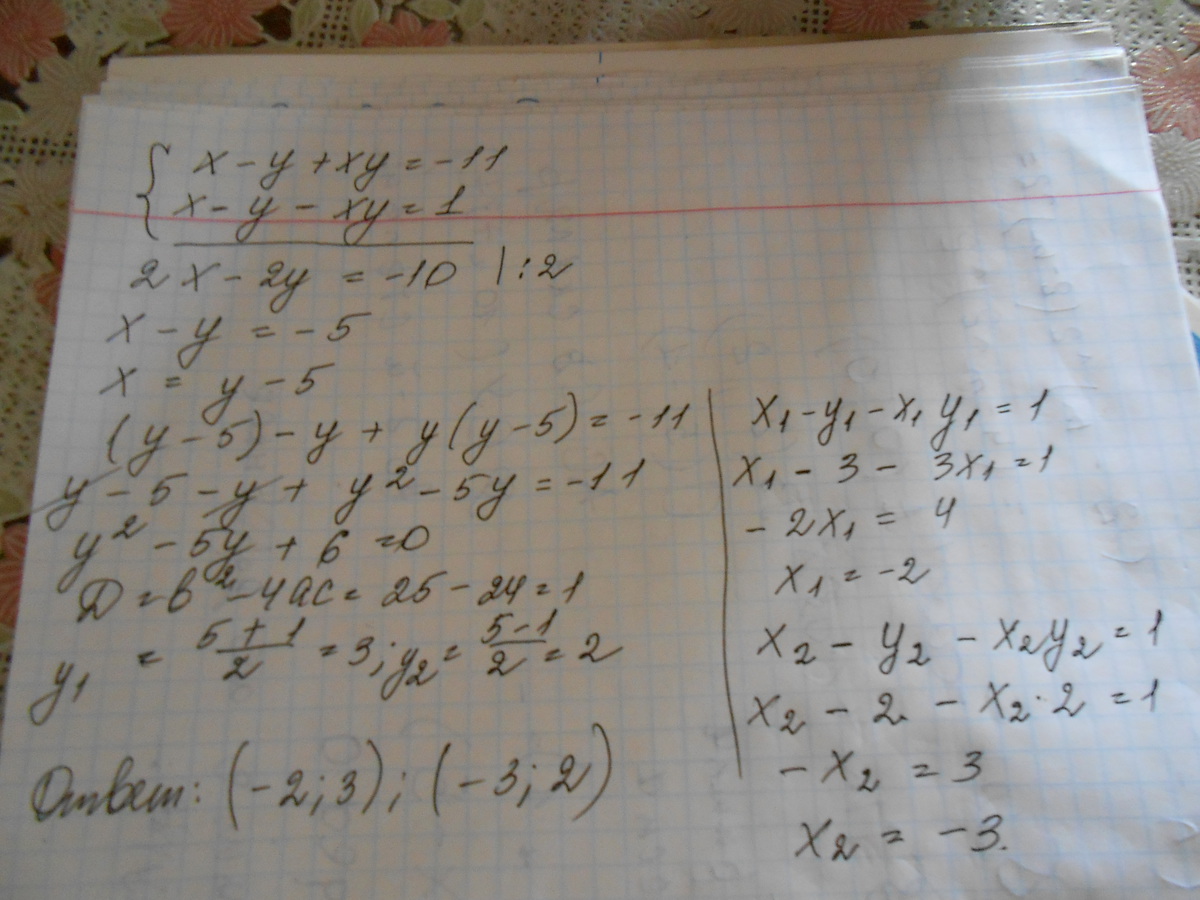 { x - y + xy = -11
x - y - xy = 1
2x - 2y = -10 | :2
x - y = -5
x = y - 5
(y - 5) - y + y(y - 5) = -11
y - 5 - y + y² - 5y = -11
y² - 5y + 6 = 0
D = b² - 4ac = 25 - 24 = 1
y₁ = (5 + 1)/2 = 3; y₂ = (5 - 1)/2 = 2
x₁ - y₁ - x₁y₁ = 1
x₁ - 3 - 3x₁ = 1
-2x₁ = 4
x₁ = -2
x₂ - y₂ - x₂y₂ = 1
x₂ - 2 - x₂·2 = 1
-x₂ = 3
x₂ = -3.
Ответ: (-2; 3); (-3; 2)